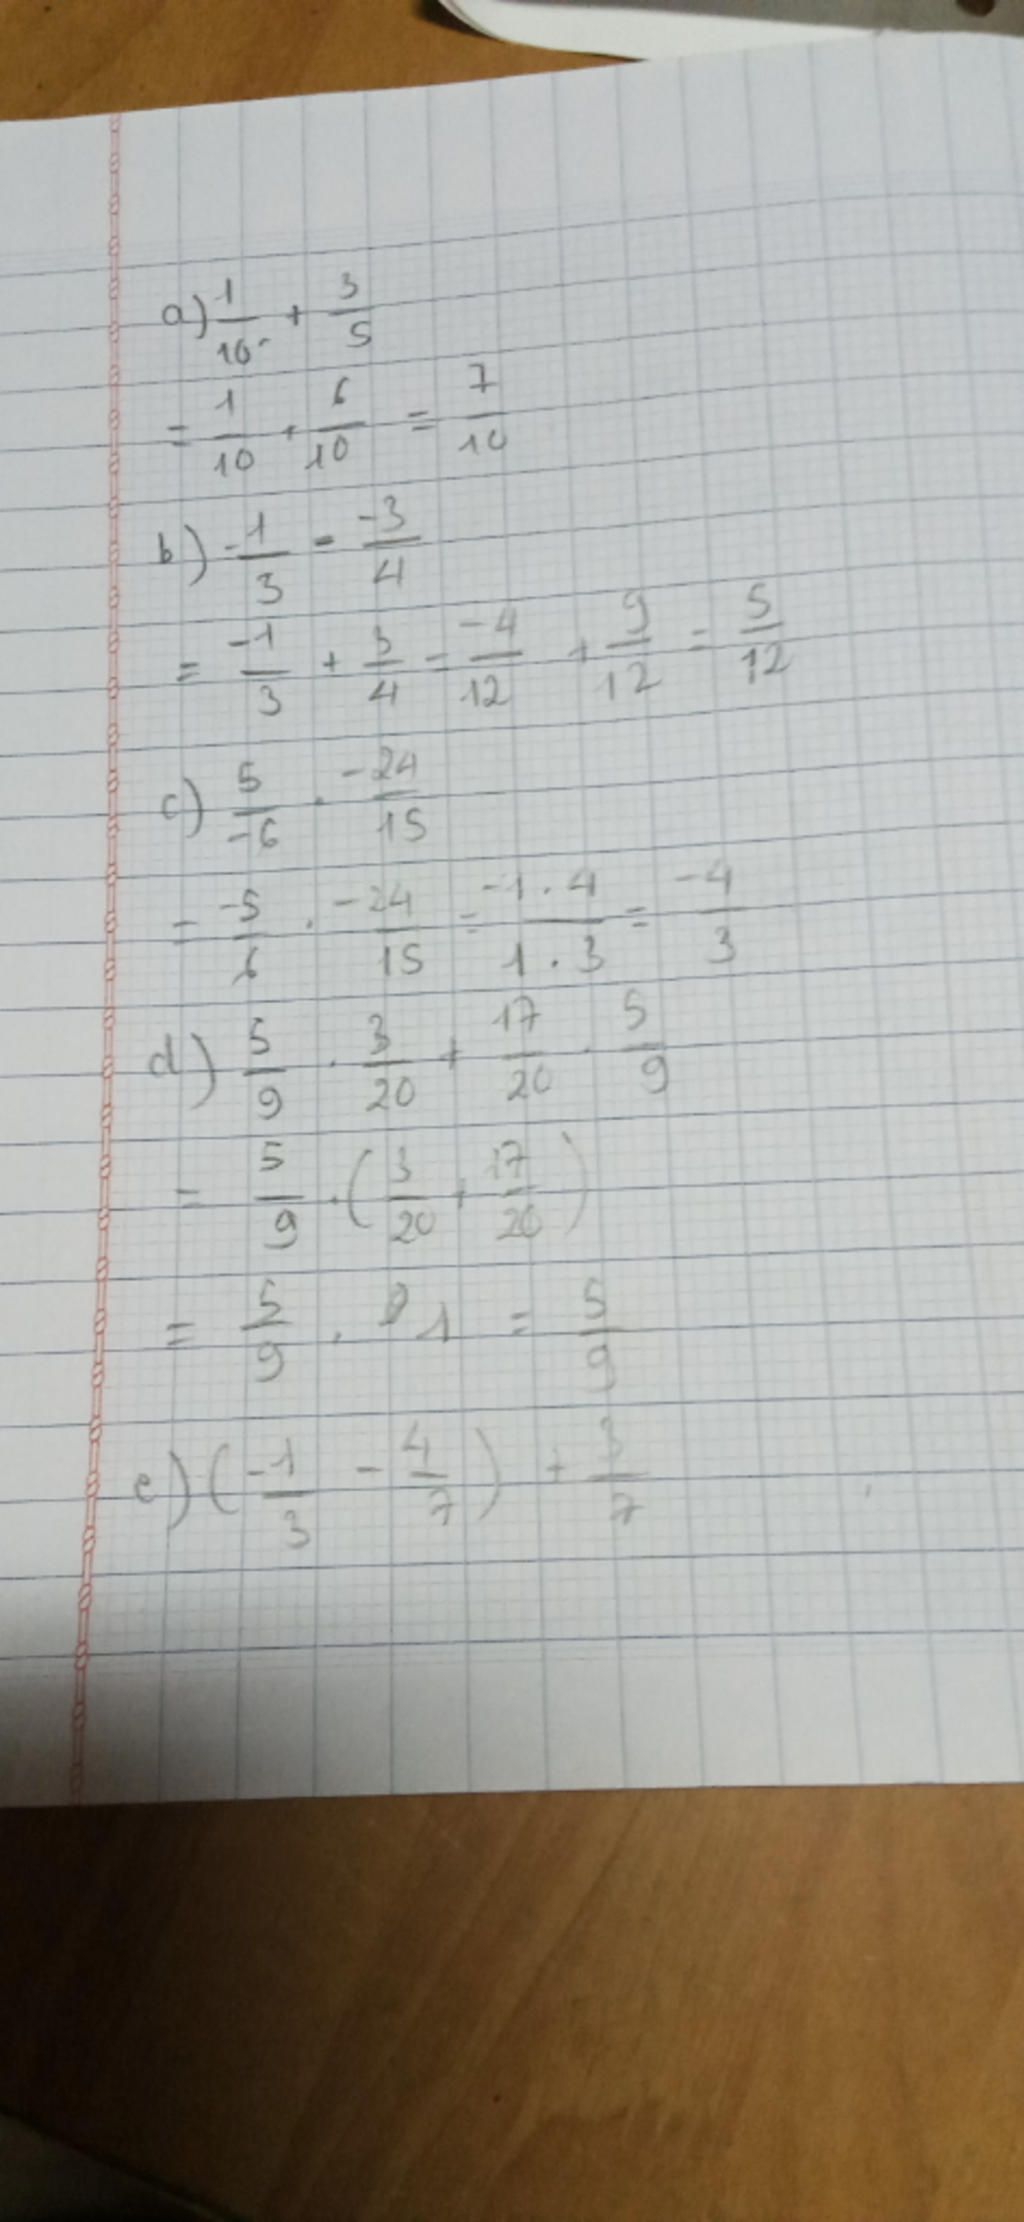 a) 1/10 + 3/5
= 1/10 + 6/10 = 7/10
b) -1/3 - -3/4
= -1/3 + 3/4 = -4/12 + 9/12 = 5/12
c) 5/-6 . -24/15
= -5/6 . -24/15 = -1.4/1.3 = -4/3
d) 5/9 . 3/20 + 17/20 . 5/9
= 5/9 . (3/20 + 17/20)
= 5/9 . 1 = 5/9
e) (-1/3 - 4/7) + 3/7